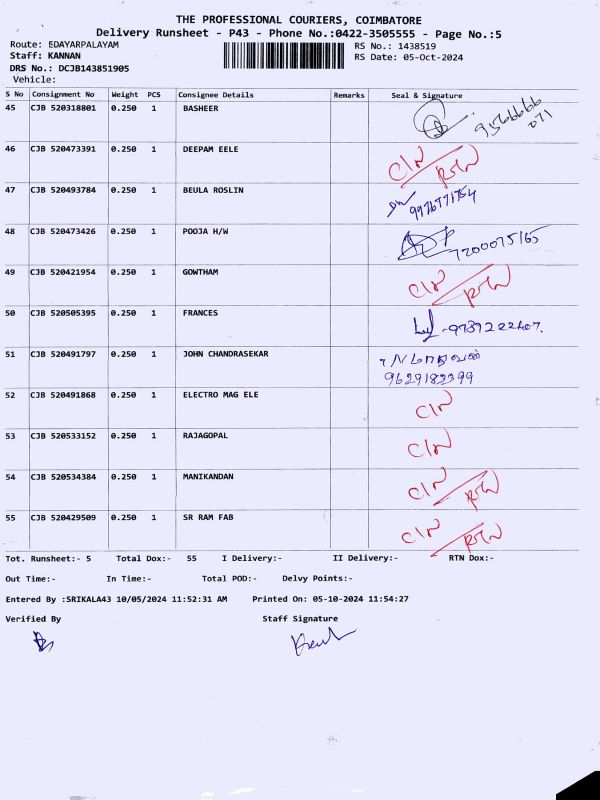 THE PROFESSIONAL COURIERS, COIMBATORE
Delivery Runsheet - P43 - Phone No.:0422-3505555 - Page No.:5
Route: EDAYARPALAYAM RS No.: 1438519
Staff: KANNAN RS Date: 05-Oct-2024
DRS No.: DCJB143851905
Vehicle:
S No Consignment No Weight PCS Consignee Details Remarks Seal & Signature
45 CJB 520318801 0.250 1 BASHEER 9566666
071
46 CJB 520473391 0.250 1 DEEPAM EELE C/N RTN
47 CJB 520493784 0.250 1 BEULA ROSLIN
48 CJB 520473426 0.250 1 POOJA H/W 7200075165
49 CJB 520421954 0.250 1 GOWTHAM C/N RTN
50 CJB 520505395 0.250 1 FRANCES
51 CJB 520491797 0.250 1 JOHN CHANDRASEKAR
9629182399
52 CJB 520491868 0.250 1 ELECTRO MAG ELE C/N
53 CJB 520533152 0.250 1 RAJAGOPAL C/N
54 CJB 520534384 0.250 1 MANIKANDAN C/N RTN
55 CJB 520429509 0.250 1 SR RAM FAB C/N RTN
Tot. Runsheet:- 5 Total Dox:- 55 I Delivery:- II Delivery:- RTN Dox:-
Out Time:- In Time:- Total POD:- Delvy Points:-
Entered By :SRIKALA43 10/05/2024 11:52:31 AM Printed On: 05-10-2024 11:54:27
Verified By Staff Signature